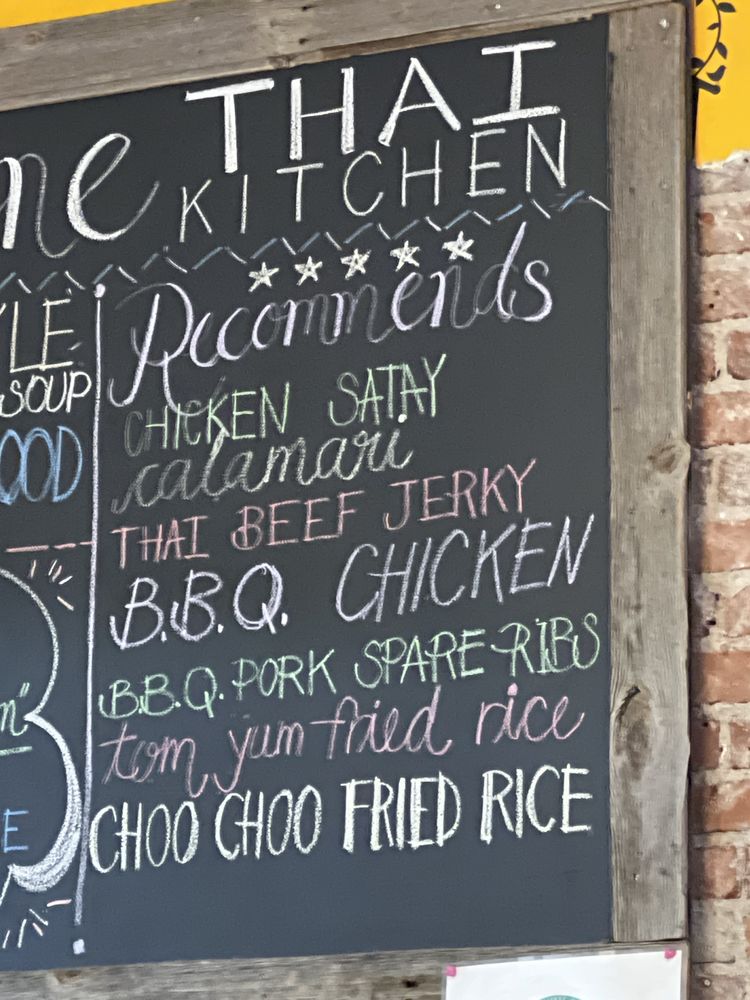 THAI
KITCHEN
Recommends
SOUP
CHICKEN SATAY
calamari
THAI BEEF JERKY
B.B.Q. CHICKEN
B.B.Q. PORK SPARE-RIBS
tom yum fried rice
CHOO CHOO FRIED RICE